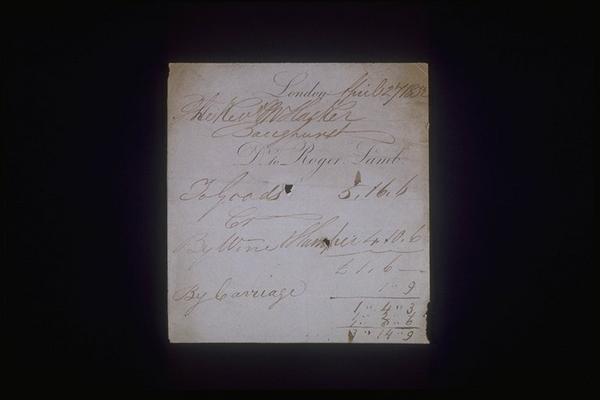 London April 27 1852
The Revd W Hacker
Baughurst
Dr. to Roger Lamb
To Goods 5.16.6
Cr
By Wine Hamper 4.10.6
£1.6 —
By Carriage 1 " 9
1 " 4 " 3
" 6
3 " 14 " 9